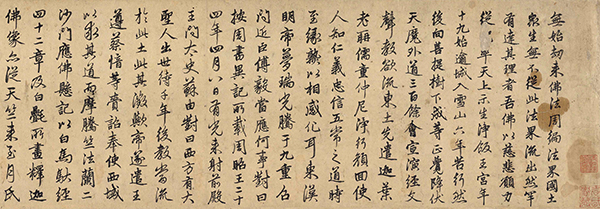 無始劫來佛法周徧法界國土
衆生無不從此法界流出然罕
有達其理者吾佛以慈悲願力
從率天上示生淨飯王宮年
十九始逾城入雪山六年苦行然
後向菩提樹下成等正覺降伏
天魔外道三百餘會宣演經文
聲教欲流東土先遣迦葉
老聃儒童仲尼淨行顏回使
人知仁義忠信五常之道時
至緣熟以相感化耳東漢
明帝夢瑞光騰于九重召
問近臣傅毅當應何事對曰
按周書異記所載周昭王二十
四年四月八日有光來射前殿
王問大史蘇由對曰西方有大
聖人出世待千年後教當流
於此土此其徵歟帝遂遣王
遵蔡愔等賫詔奉使西域
以求其道而摩騰竺法蘭二
沙門應佛懸記以白馬馱經
四十二章及白氎所畫釋迦
佛像亦從天竺來至月氏